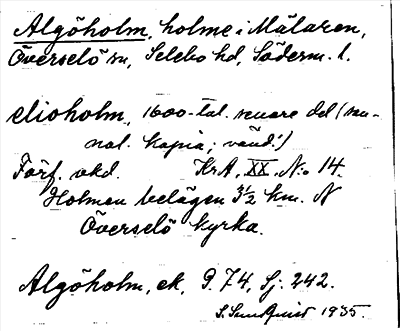 Algöholm, holme i Mälaren,
Överselö sn, Selebo hd, Söderm. l.
elioholm, 1600-tal. senare del (san-
nol. kopia; vänd!)
Förf. okd. KrA, XX. No 14.
Holmen belägen 3½ km. N
Överselö kyrka.
Algöholm, ek. 9.74, Sj. 242.
S. Sundquist 1935.